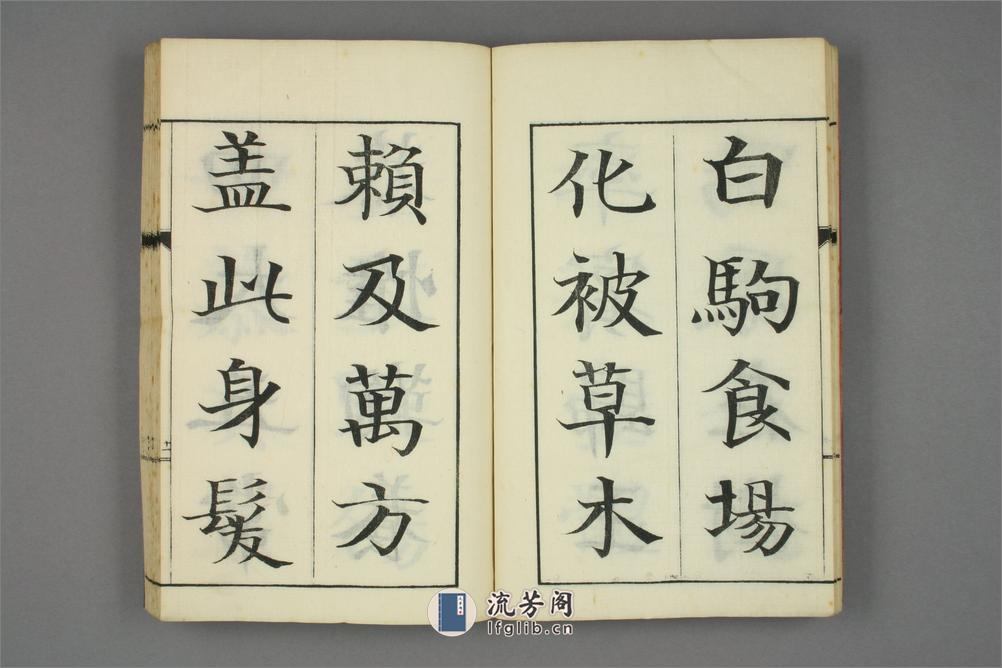 白駒食場
化被草木
賴及萬方
盖此身髮
流芳阁
lfglib.cn